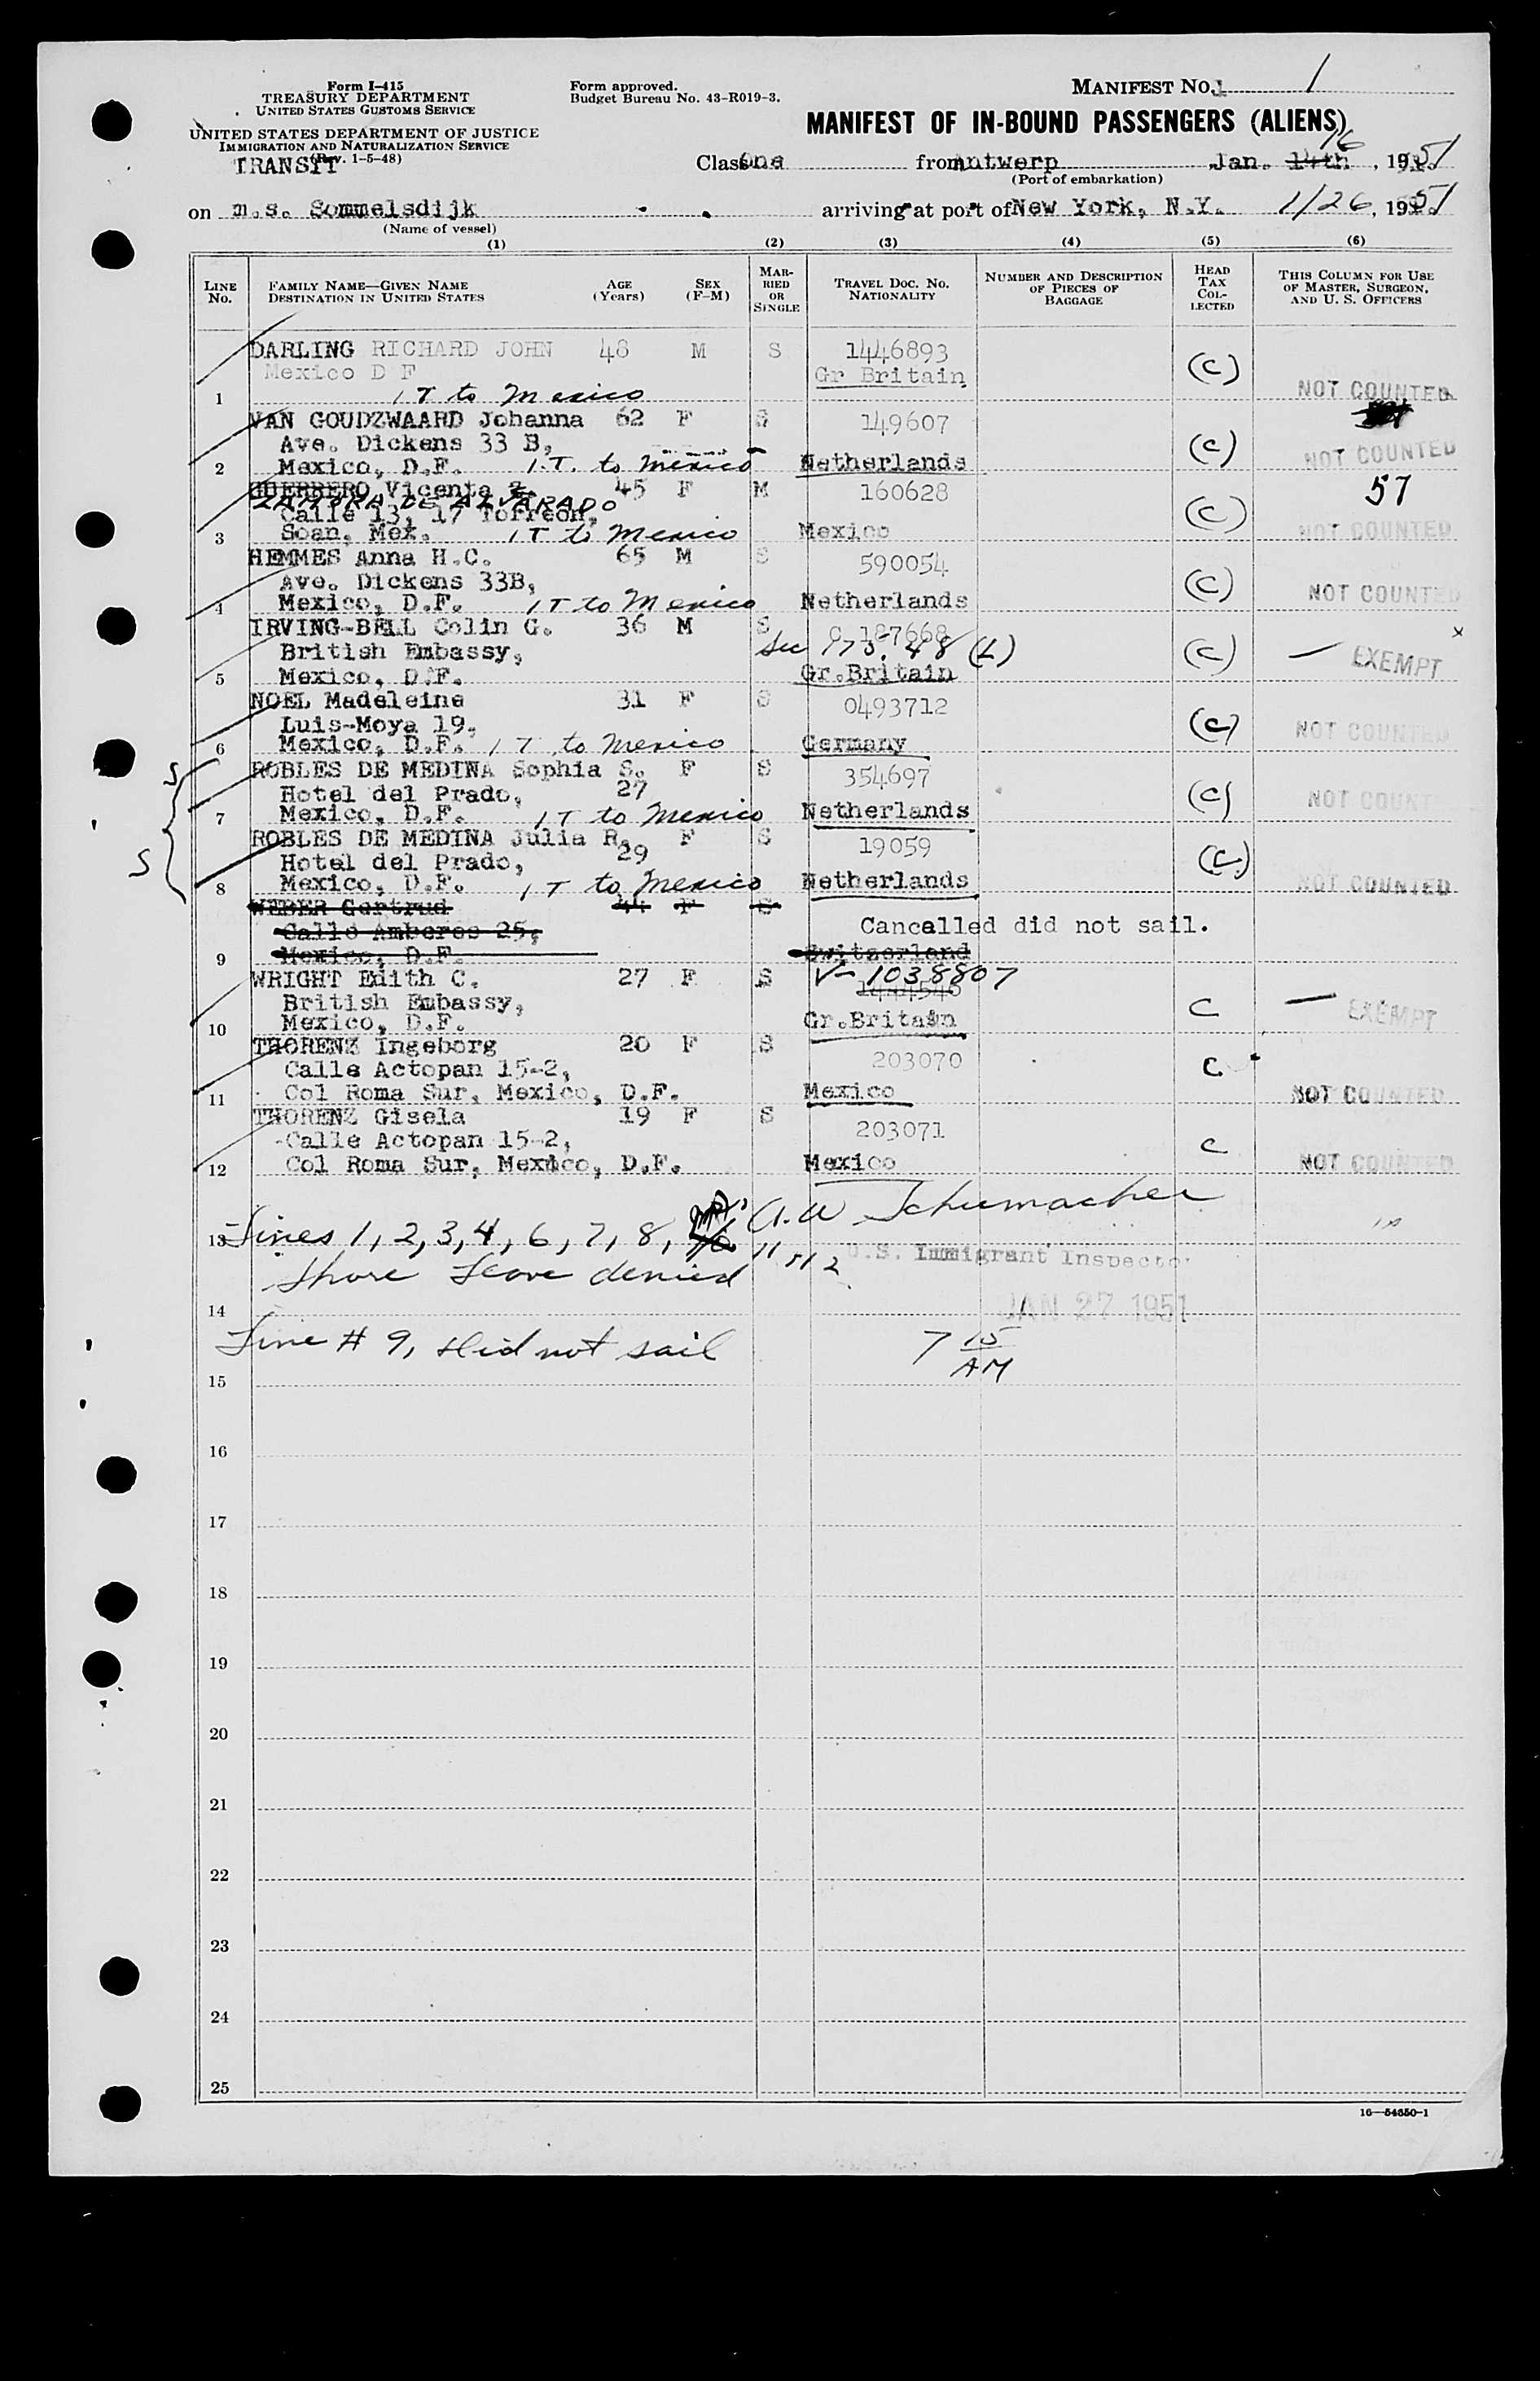 Form I-415
TREASURY DEPARTMENT
UNITED STATES CUSTOMS SERVICE
UNITED STATES DEPARTMENT OF JUSTICE
IMMIGRATION AND NATURALIZATION SERVICE
(Rev. 1-5-48)
TRANSIT
Form approved.
Budget Bureau No. 43-R019-3.
MANIFEST NO. 1
MANIFEST OF IN-BOUND PASSENGERS (ALIENS)
Class One from Antwerp Jan. 14th 16, 1951
(Port of embarkation)
on m.s. Sommelsdijk arriving at port of New York, N.Y. 1/26, 1951
(Name of vessel)
(1) (2) (3) (4) (5) (6)
LINE NO. FAMILY NAME—GIVEN NAME DESTINATION IN UNITED STATES AGE (Years) SEX (F-M) MARRIED OR SINGLE TRAVEL DOC. NO. NATIONALITY NUMBER AND DESCRIPTION OF PIECES OF BAGGAGE HEAD TAX COLLECTED THIS COLUMN FOR USE OF MASTER, SURGEON, AND U. S. OFFICERS
DARLING RICHARD JOHN 48 M S 1446893
Mexico D F Gr Britain (C)
1 1 T to Mexico NOT COUNTED
VAN GOUDZWAARD Johanna 62 F S 149607
Ave. Dickens 33 B, (C)
2 Mexico, D.F. 1.T. to Mexico Netherlands NOT COUNTED
GUERRERO Vicenta Z. 45 F M 160628 57
ZAMORA DE ALVARADO
Calle 13, 17 Torreon, (C)
3 Soan, Mex. 1 T to Mexico Mexico NOT COUNTED
HEMMES Anna H.C. 65 M S 590054
Ave. Dickens 33B, (C)
4 Mexico, D.F. 1 T to Mexico Netherlands NOT COUNTED
IRVING-BELL Colin G. 36 M S C 187668 x
British Embassy, Sec 175.48 (L) (C) — EXEMPT
5 Mexico, D.F. Gr.Britain
NOEL Madeleine 31 F S 0493712
Luis-Moya 19, (C)
6 Mexico, D.F. 1 T to Mexico Germany NOT COUNTED
S ROBLES DE MEDINA Sophia S. F S 354697
Hotel del Prado, 27 (C)
7 Mexico, D.F. 1 T to Mexico Netherlands NOT COUNTED
S ROBLES DE MEDINA Julia R. F S 19059
Hotel del Prado, 29 (C)
8 Mexico, D.F. 1 T to Mexico Netherlands NOT COUNTED
WEBER Gertrud 44 F S
Calle Amberes 25, Cancelled did not sail.
9 Mexico, D.F. Switzerland
WRIGHT Edith C. 27 F S V-1038807
British Embassy, C — EXEMPT
10 Mexico, D.F. Gr.Britain
THORENZ Ingeborg 20 F S 203070
Calle Actopan 15-2, C
11 Col Roma Sur, Mexico, D.F. Mexico NOT COUNTED
THORENZ Gisela 19 F S 203071
Calle Actopan 15-2, C
12 Col Roma Sur, Mexico, D.F. Mexico NOT COUNTED
A.W Schumacher
13 Lines 1, 2, 3, 4, 6, 7, 8,
U.S. Immigrant Inspector
Shore Leave denied
14 JAN 27 1951
Line # 9, did not sail 7 15 AM
15
16
17
18
19
20
21
22
23
24
25
16—54650-1